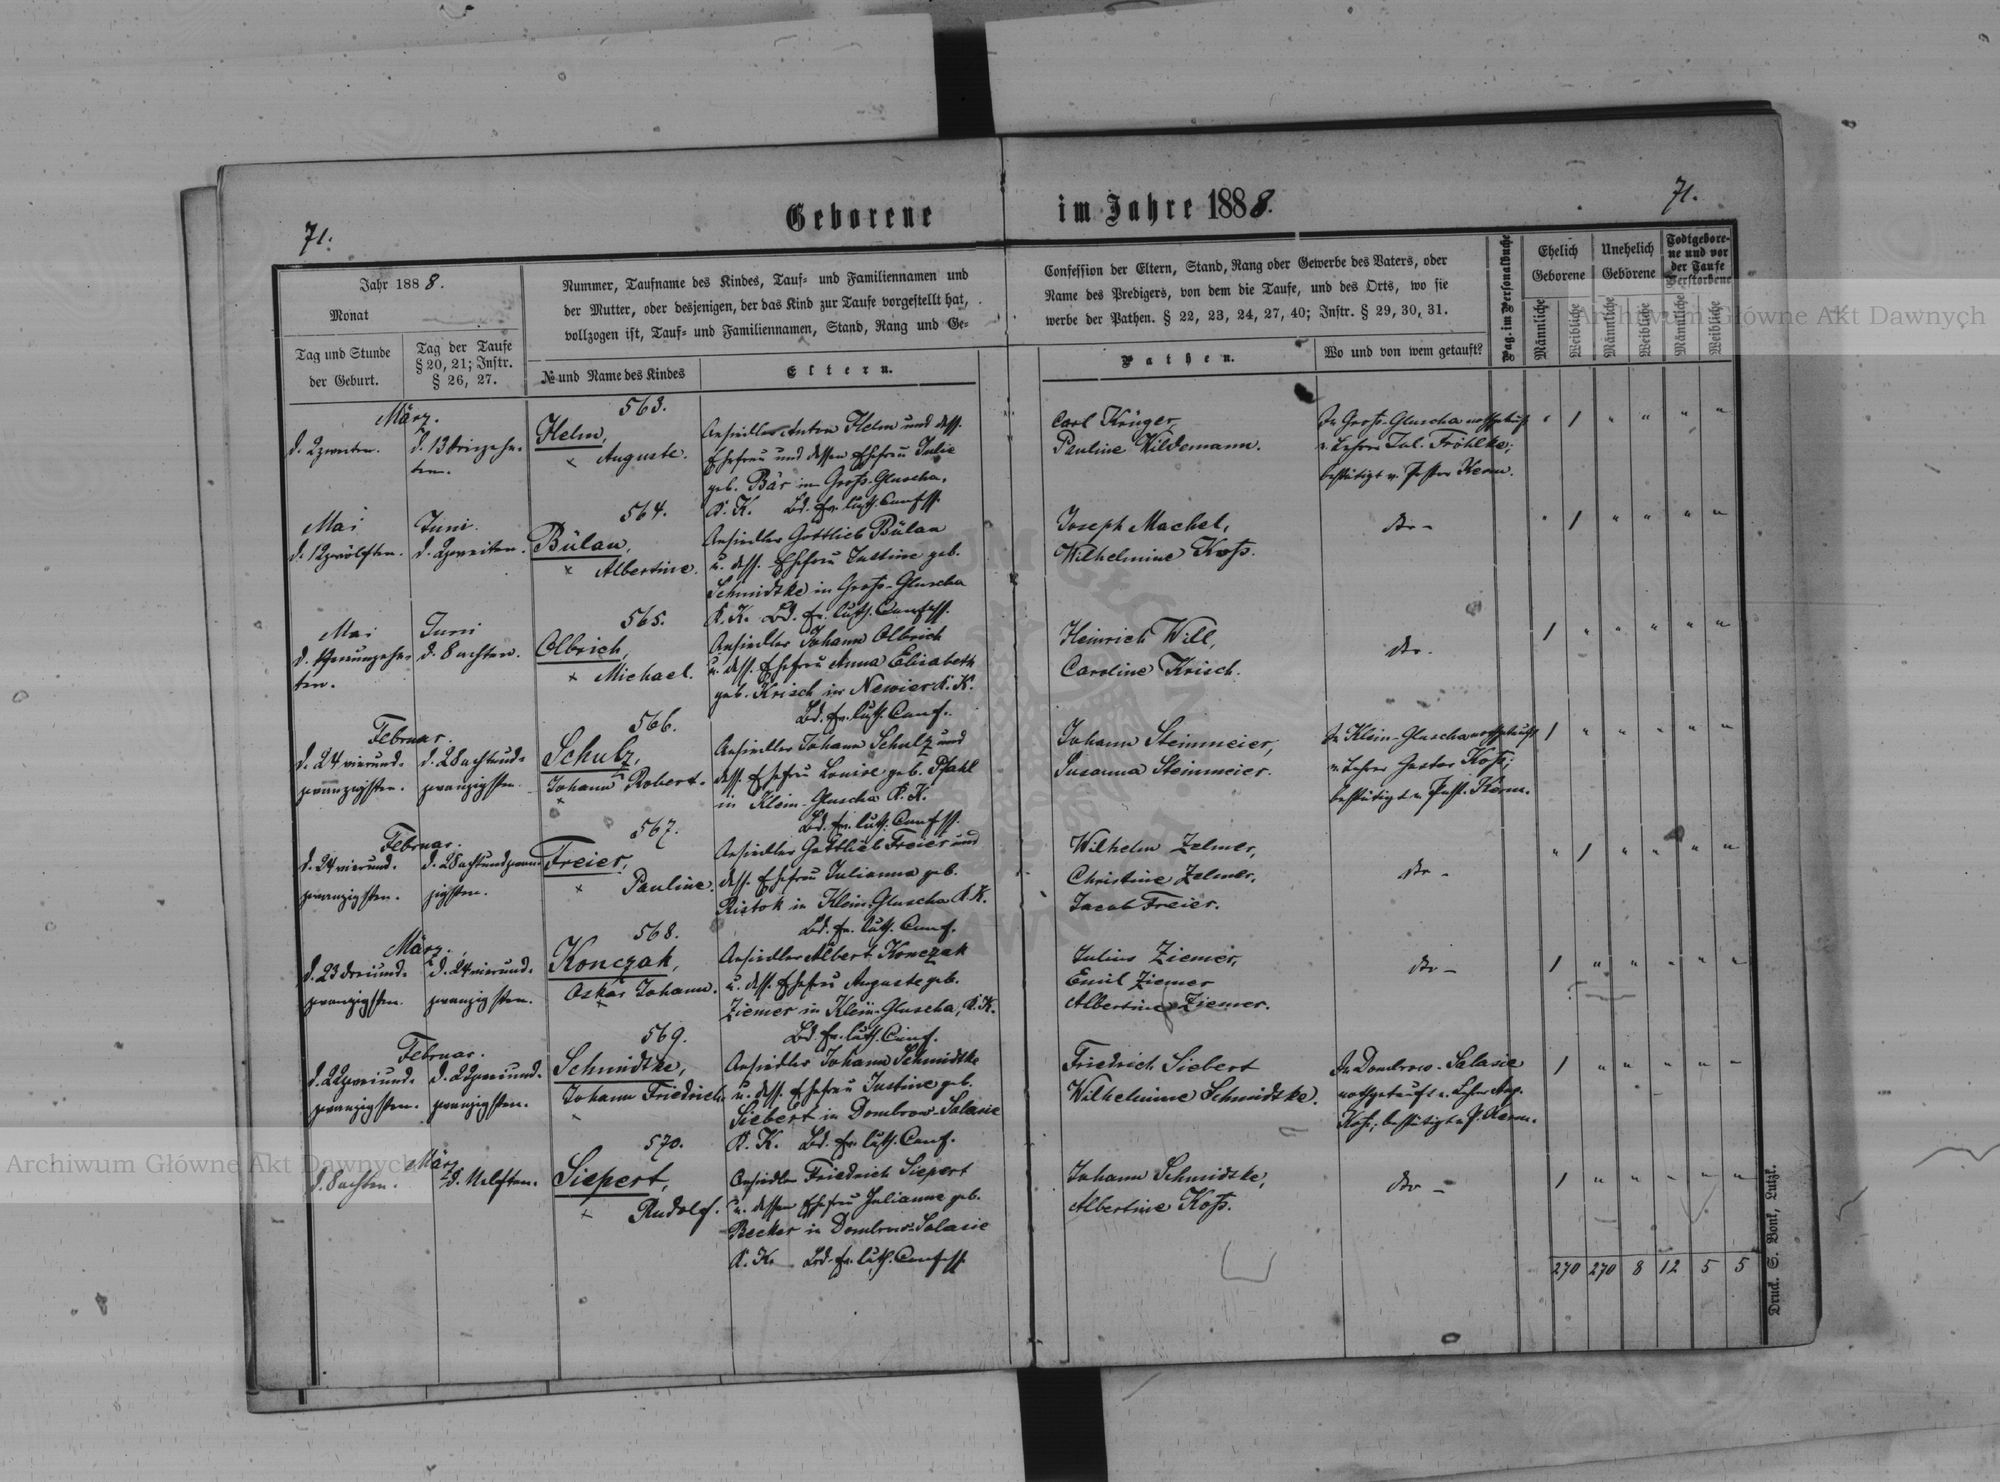 71.
Geborene
im Jahre 1888.
71.
Jahr 1888.
Monat
Tag und Stunde
der Geburt.
Tag der Taufe
§ 20, 21; Instr.
§ 26, 27.
Nummer, Taufname des Kindes, Tauf- und Familiennamen und
der Mutter, oder desjenigen, der das Kind zur Taufe vorgestellt hat,
vollzogen ist, Tauf- und Familiennamen, Stand, Rang und Ge-
№ und Name des Kindes
Eltern.
Confession der Eltern, Stand, Rang oder Gewerbe des Vaters, oder
Name des Predigers, von dem die Taufe, und des Orts, wo sie
werbe der Pathen. § 22, 23, 24, 27, 40; Instr. § 29, 30, 31.
Pathen.
Wo und von wem getauft?
Pag. im Personalbuche
Ehelich
Geborene
Unehelich
Geborene
Todtgebore-
ne und vor
der Taufe
Verstorbene
Männliche
Weibliche
Männliche
Weibliche
Männliche
Weibliche
März.
d. 2 zweiten.
d. 13 dreizehn-
ten.
563.
Helm,
× Auguste.
Ansiedler Anton Helm und dess.
Ehefrau und dessen Ehefrau Julie
geb. Bär in Groß-Gluscha,
K. K. Bd. ev. luth. Confess.
Carl Krüger,
Pauline Wildemann.
In Groß-Gluscha nothgetauft
v. Lehrer Jul. Fröhlke;
bestätigt v. Pastor Kerm.
" 1 " " " "
Mai
d. 12 zwölften.
Juni.
d. 2 zweiten.
564.
Bülau,
× Albertine.
Ansiedler Gottlieb Bülau
u. dess. Ehefrau Justine geb.
Schmidtke in Groß-Gluscha
K. K. Bd. ev. luth. Confess.
Joseph Machel,
Wilhelmine Koß.
dto –
" 1 " " " "
Mai
d. 19 neunzehn-
ten.
Juni
d. 8 achten.
565.
Olbrich,
× Michael.
Ansiedler Johann Olbrich
u. dess. Ehefrau Anna Elisabeth
geb. Krisch in Newier K. K.
Bd. ev. luth. Conf.
Heinrich Will,
Caroline Krisch.
dto.
1 " " " " "
Februar.
d. 24 vierund-
zwanzigsten.
d. 28 achtund-
zwanzigsten.
566.
Schulz,
Johann Robert.
×
Ansiedler Johann Schulz und
dess. Ehefrau Louise geb. Pfahl
in Klein-Gluscha K. K.
Bd. ev. luth. Confess.
Johann Steinmeier,
Susanna Steinmeier.
In Klein-Gluscha nothgetauft
v. Lehrer Gustav Koß;
bestätigt v. Past. Kerm.
1 " " " " "
Februar.
d. 24 vierund-
zwanzigsten.
d. 28 achtundzwan-
zigsten.
567.
Freier,
× Pauline.
Ansiedler Gottlieb Freier und
dess. Ehefrau Julianna geb.
Ristok in Klein-Gluscha K. K.
Bd. ev. luth. Conf.
Wilhelm Zelmer,
Christine Zelmer,
Jacob Freier.
dto –
" 1 " " " "
März.
d. 23 dreiund-
zwanzigsten.
d. 24 vierund-
zwanzigsten.
568.
Konczak,
Oskar Johann.
×
Ansiedler Albert Konczak
u. dess. Ehefrau Auguste geb.
Ziemer in Klein-Gluscha, K. K.
Bd. ev. luth. Conf.
Julius Ziemer,
Emil Ziemer
Albertine Ziemer.
dto –
1 " " " " "
Februar.
d. 22 zweiund-
zwanzigsten.
d. 22 zweiund-
zwanzigsten.
569.
Schmidtke,
Johann Friedrich.
Ansiedler Johann Schmidtke
u. dess. Ehefrau Justine geb.
Siebert in Dombrow-Salasie
K. K. Bd. ev. luth. Conf.
Friedrich Siebert
Wilhelmine Schmidtke.
In Dombrow-Salasie
nothgetauft v. Lehr. Aug.
Koß; bestätigt v. P. Kerm.
1 " " " " "
März
d. 8 achten.
d. 11 elften.
570.
Siepert,
× Rudolf.
Ansiedler Friedrich Siepert
u. dessen Ehefrau Julianne geb.
Becker in Dombrow-Salasie
K. K. Bd. ev. luth. Confess.
Johann Schmidtke,
Albertine Koß.
dto –
1 " " " " "
270 270 8 12 5 5
Druck. S. Bonk, Lutzk.
Archiwum Główne Akt Dawnych
Archiwum Główne Akt Dawnych